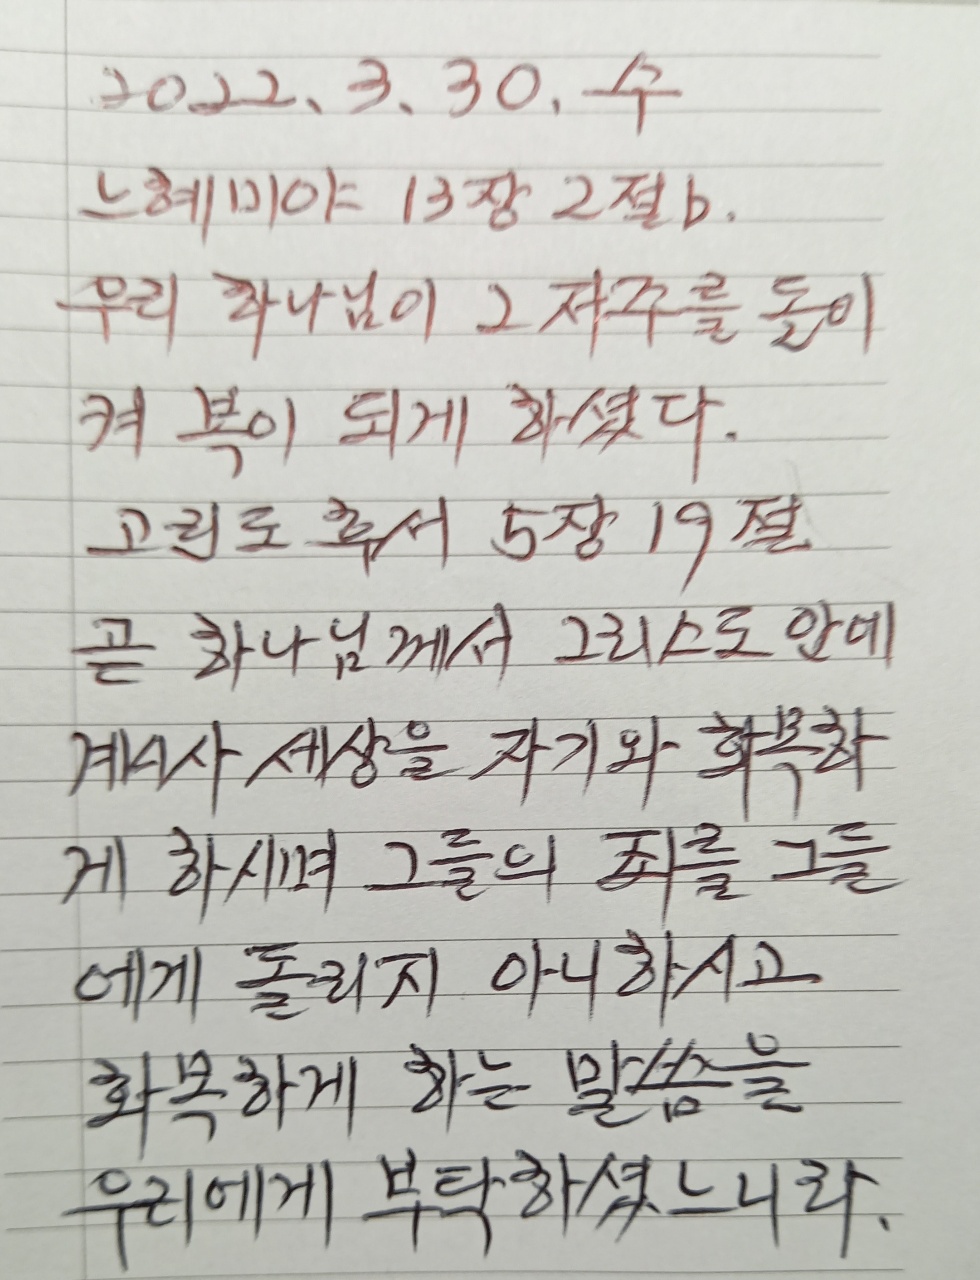 2022. 3. 30. 수
느헤미야 13장 2절b.
우리 하나님이 그 저주를 돌이
켜 복이 되게 하셨다.
고린도 후서 5장 19절
곧 하나님께서 그리스도 안에
계시사 세상을 자기와 화목하
게 하시며 그들의 죄를 그들
에게 돌리지 아니하시고
화목하게 하는 말씀을
우리에게 부탁하셨느니라.